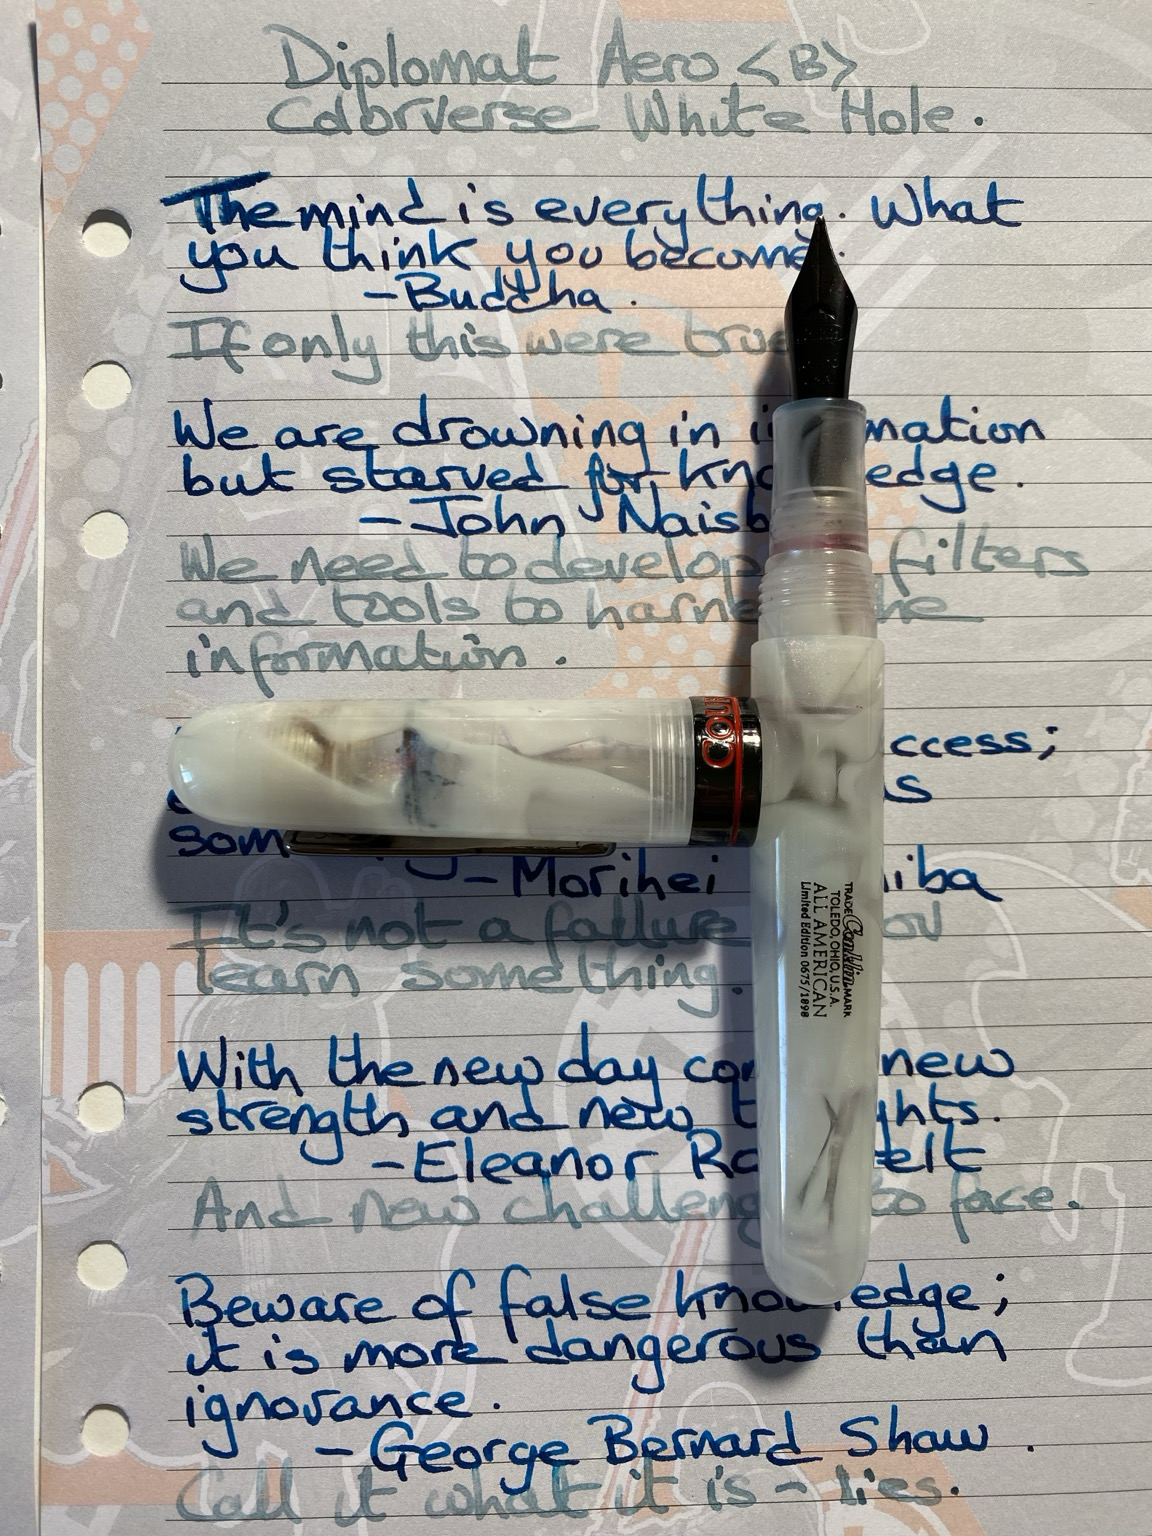 Diplomat Aero <B>
Colorverse White Hole.
The mind is everything. What
you think you become.
- Buddha.
If only this were true
We are drowning in mation
but starved for kno edge.
- John Naisb
We need to develop filters
and tools to harne he
information.
ccess;
s
som
- Morihei iba
It's not a failure ou
learn something.
With the new day co new
strength and new t ghts.
- Eleanor Ro elt
And new challeng to face.
Beware of false know edge;
it is more dangerous than
ignorance.
- George Bernard Shaw.
Call it what it is - lies.
TRADE Conklin MARK
TOLEDO, OHIO, U.S.A.
ALL AMERICAN
Limited Edition 0675/1898